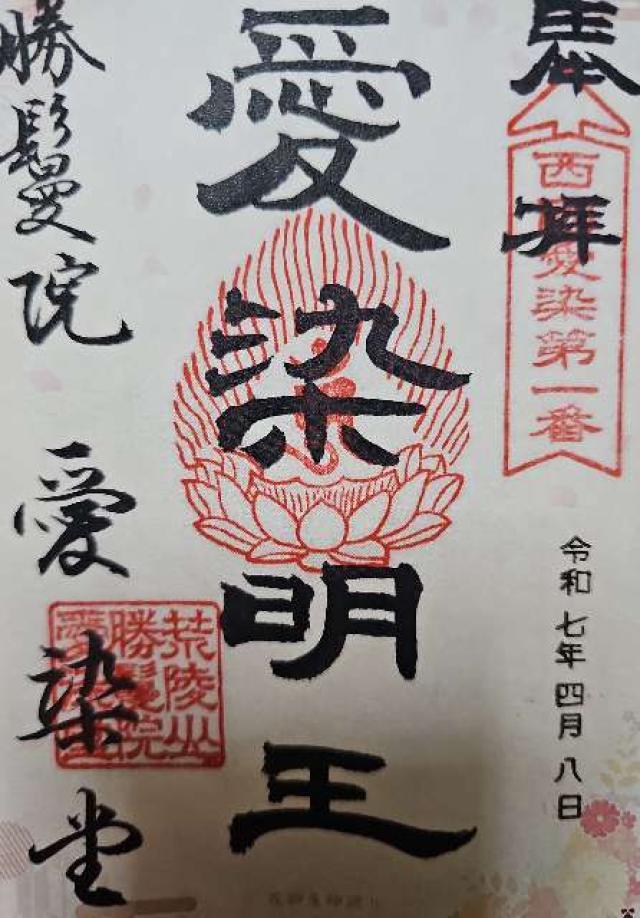 奉拝
西国愛染第一番
令和七年四月八日
愛染明王
勝鬘院 愛染堂
荒陵山
勝鬘院
愛染堂